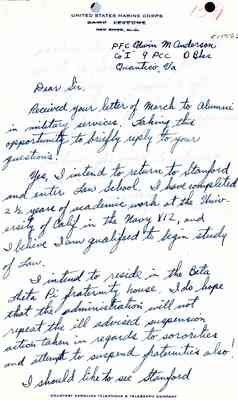 UNITED STATES MARINE CORPS
CAMP LEJEUNE
NEW RIVER, N.C.
PFC Edwin M Anderson
Co I 9 PCC O Bks
Quantico, Va
Dear Sir,
Received your letter of March to Alumni
in military services. Taking this
opportunity to briefly reply to your
questions:
Yes, I intend to return to Stanford
and enter Law School. I have completed
2½ years of academic work at the Univ-
ersity of Calif in the Navy V12, and
I believe I am qualified to begin study
of Law.
I intend to reside in the Beta
theta Pi fraternity house. I do hope
that the administration will not
repeat the ill advised suspension
action taken in regards to sororities
and attempt to suspend fraternities also!
I should like to see Stanford
COURTESY CAROLINA TELEPHONE & TELEGRAPH COMPANY